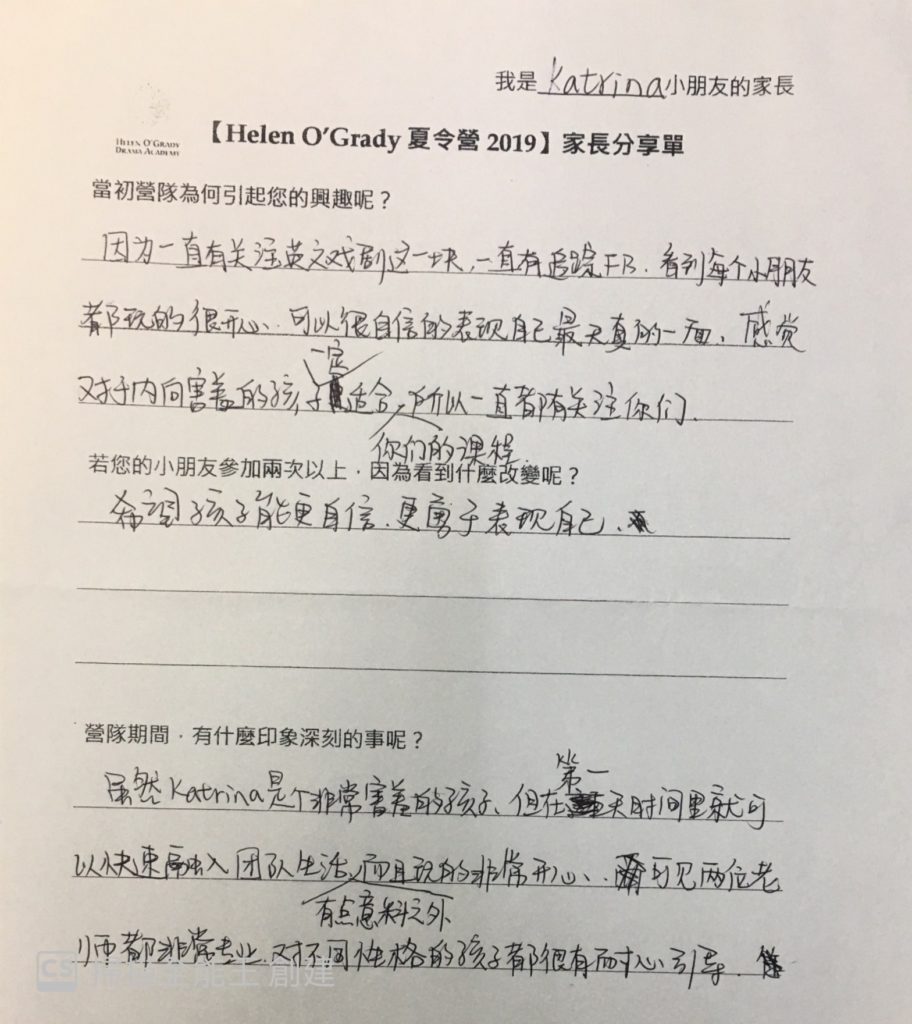 我是 Katrina 小朋友的家長
HELEN O'GRADY
DRAMA ACADEMY
【Helen O'Grady 夏令營 2019】家長分享單
當初營隊為何引起您的興趣呢？
因为一直有关注英文戏剧这一块,一直有追踪FB.看到每个小朋友
都玩的很开心.可以很自信的表现自己最天真的一面、感觉
一定
对于内向害羞的孩子适合,所以一直都有关注你们.
你们的课程.
若您的小朋友參加兩次以上，因為看到什麼改變呢？
希望孩子能更自信、更勇于表现自己.
營隊期間，有什麼印象深刻的事呢？
第一
虽然Katrina是个非常害羞的孩子、但在天时间里就可
以快速融入团队生活,而且玩的非常开心.可见两位老
有点意料之外
师都非常专业.对不同性格的孩子都很有耐心引导.
CS 掃描全能王創建